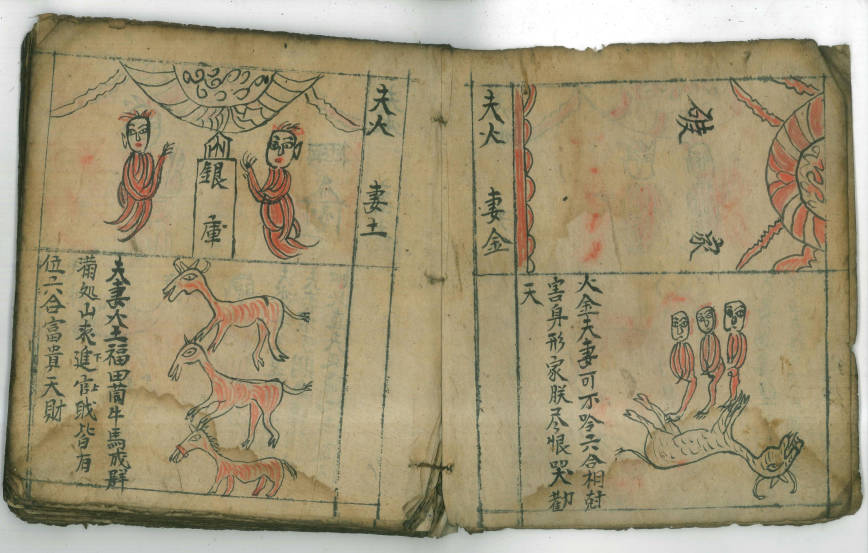 夫火 妻金
破家
火金夫妻可不吟六合相尅
害身形家朕尽恨哭勸
天
夫火 妻土
銀庫
夫妻火土福田菌牛馬成群
滿処山進官皆有
位六合富貴天財